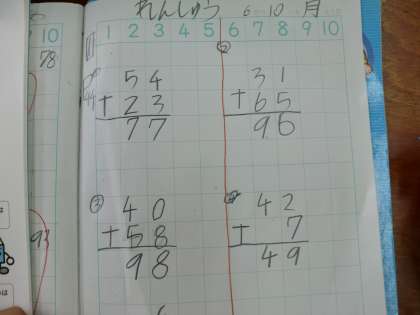 れんしゅう 6 10 月
10 1 2 3 4 5 6 7 8 9 10
78
① 54
+23
77
② 31
+65
96
③ 40
+58
98
④ 42
+ 7
49
93